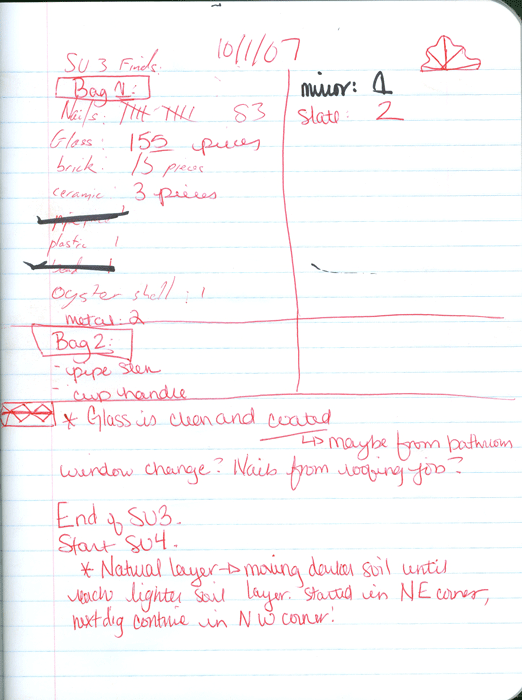 10/1/07
SU 3 Finds
Bag 1:
Nails: 83
Glass: 155 pieces
brick: 15 pieces
ceramic: 3 pieces
plastic 1
oyster shell: 1
metal: 2
mirror: 1
Slate: 2
Bag 2:
- pipe stem
- cup handle
* Glass is clean and coated
↳ maybe from bathroom
window change? Nails from roofing job?
End of SU3.
Start SU4.
* Natural layer → moving darker soil until
reach lighter soil layer. Started in NE corner,
next dig continue in NW corner!